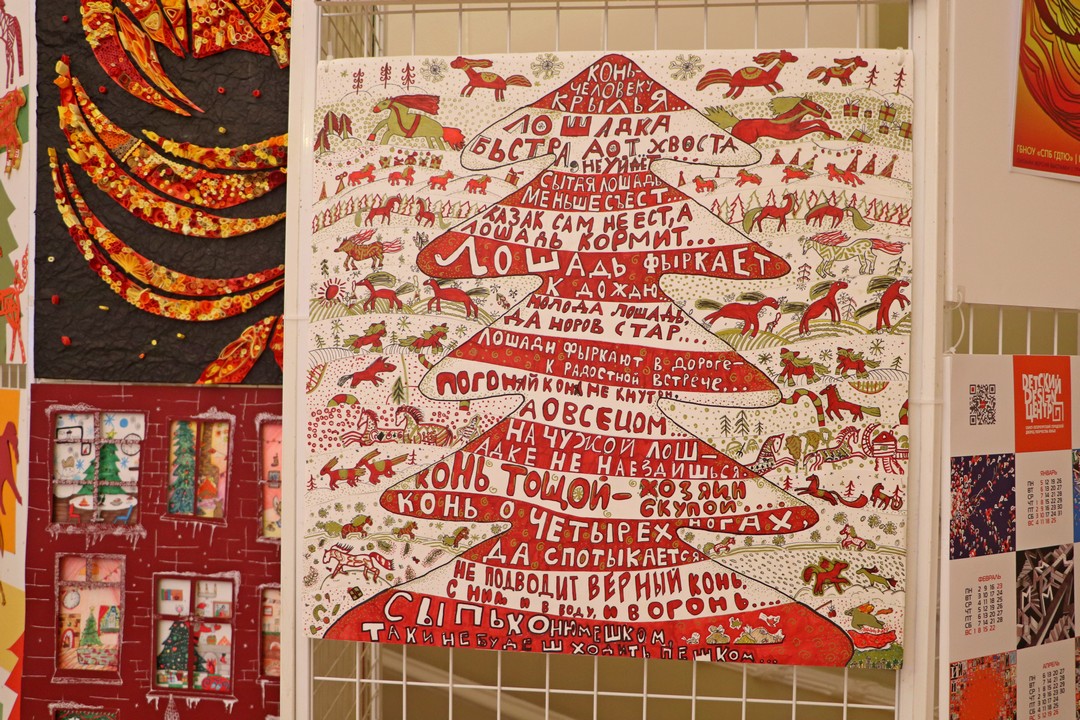 КОНЬ-
ЧЕЛОВЕКУ
КРЫЛЬЯ...
ЛОШАДКА
БЫСТРА, А ОТ ХВОСТА
НЕ УЙДЕТ
СЫТАЯ ЛОШАДЬ
МЕНЬШЕ СЪЕСТ...
КАЗАК САМ НЕ ЕСТ, А
ЛОШАДЬ КОРМИТ...
ЛОШАДЬ ФЫРКАЕТ
К ДОЖДЮ...
МОЛОДА ЛОШАДЬ,
ДА НОРОВ СТАР...
ЛОШАДИ ФЫРКАЮТ В ДОРОГЕ-
К РАДОСТНОЙ ВСТРЕЧЕ...
ПОГОНЯЙ КОНЯ НЕ КНУТОМ,
А ОВСЕЦОМ...
НА ЧУЖОЙ ЛОШ-
АДКЕ НЕ НАЕЗДИШЬСЯ
КОНЬ ТОЩОЙ- ХОЗЯИН
СКУПОЙ...
КОНЬ О ЧЕТЫРЕХ НОГАХ,
ДА СПОТЫКАЕТСЯ
НЕ ПОДВОДИТ ВЕРНЫЙ КОНЬ.
С НИМ И В ВОДУ, И В ОГОНЬ...
СЫПЬ КОНЮ МЕШКОМ,
ТАК И НЕ БУДЕШ ХОДИТЬ ПЕШКОМ...
ГБНОУ «СПБ ГДТЮ»
DЕТСКИЙ
DЕSIGN
ЦЕНТР
ЯНВАРЬ
ПН
ВТ
СР
ЧТ
ПТ
СБ
ВС
ФЕВРАЛЬ
ПН
ВТ
СР
ЧТ
ПТ
СБ
ВС 1 8 15 22
АПРЕЛЬ
ПН
ВТ
СР